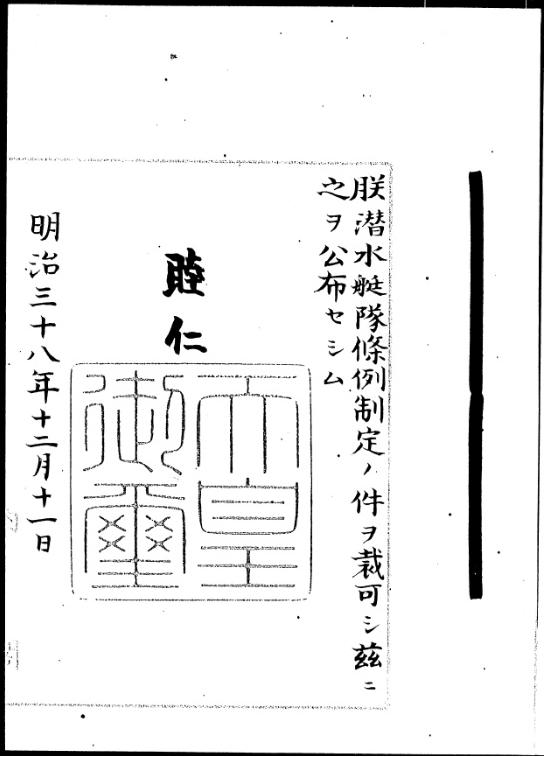 朕潜水艇隊條例制定ノ件ヲ裁可シ茲ニ
之ヲ公布セシム
睦仁
天皇
御璽
明治三十八年十二月十一日